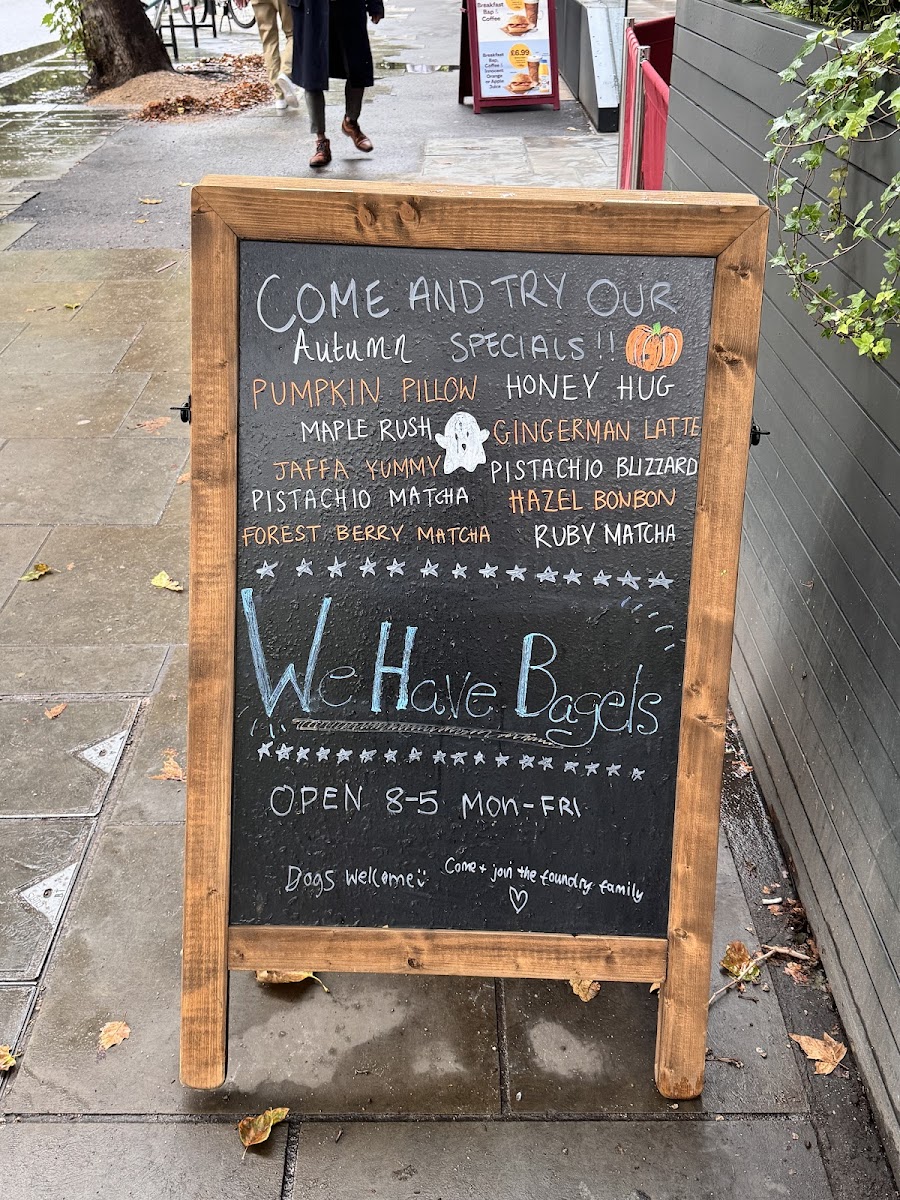 Breakfast
Bap &
Coffee
£6.99
Breakfast
Bap,
Coffee &
Innocent
Orange
or Apple
Juice
COME AND TRY OUR
Autumn SPECIALS!!
PUMPKIN PILLOW HONEY HUG
MAPLE RUSH GINGERMAN LATTE
JAFFA YUMMY PISTACHIO BLIZZARD
PISTACHIO MATCHA HAZEL BONBON
FOREST BERRY MATCHA RUBY MATCHA
We Have Bagels
OPEN 8-5 MON-FRI
Dogs Welcome Come + join the foundry family